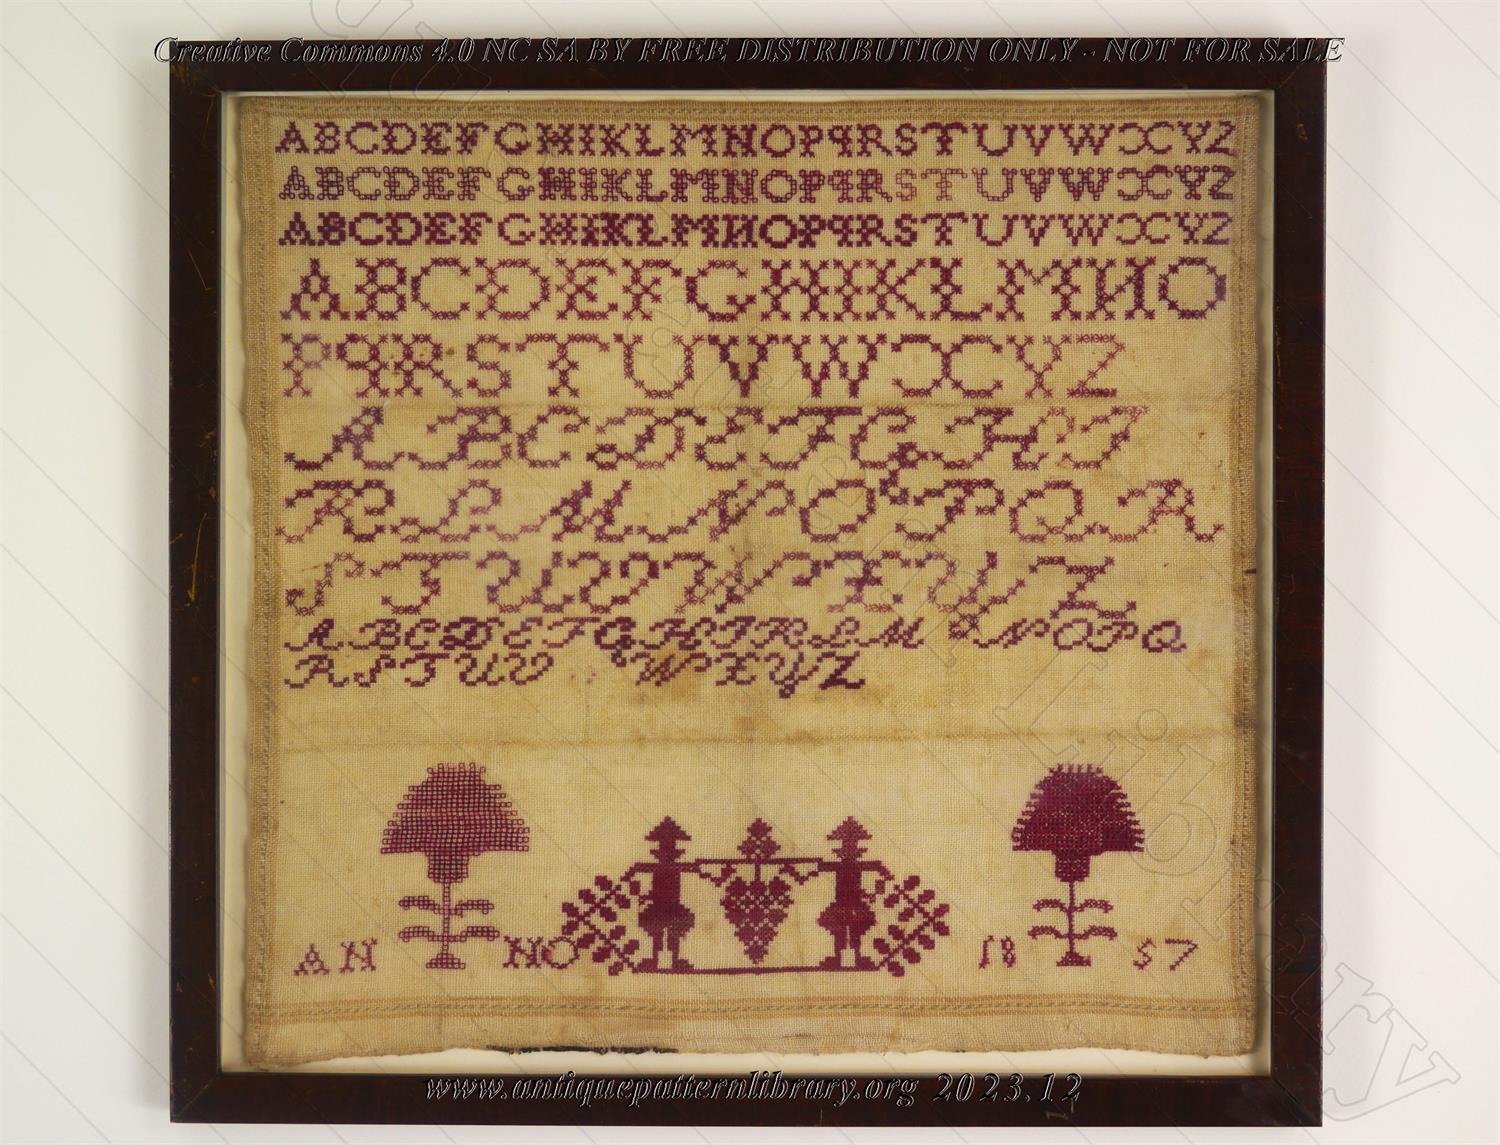 Creative Commons 4.0 NC SA BY FREE DISTRIBUTION ONLY - NOT FOR SALE
ABCDEFGHIKLMNOPQRSTUVWXYZ
ABCDEFGHIKLMNOPQRSTUVWXYZ
ABCDEFGHIKLMNOPQRSTUVWXYZ
ABCDEFGHIKLMNO
PQRSTUVWXYZ
ABCDEFGHI
KLMNOPQR
STUVWXYZ
ABCDEFGHIKLMNOPQ
RSTUVWXYZ
AN NO 18 57
www.antiquepatternlibrary.org 2023.12